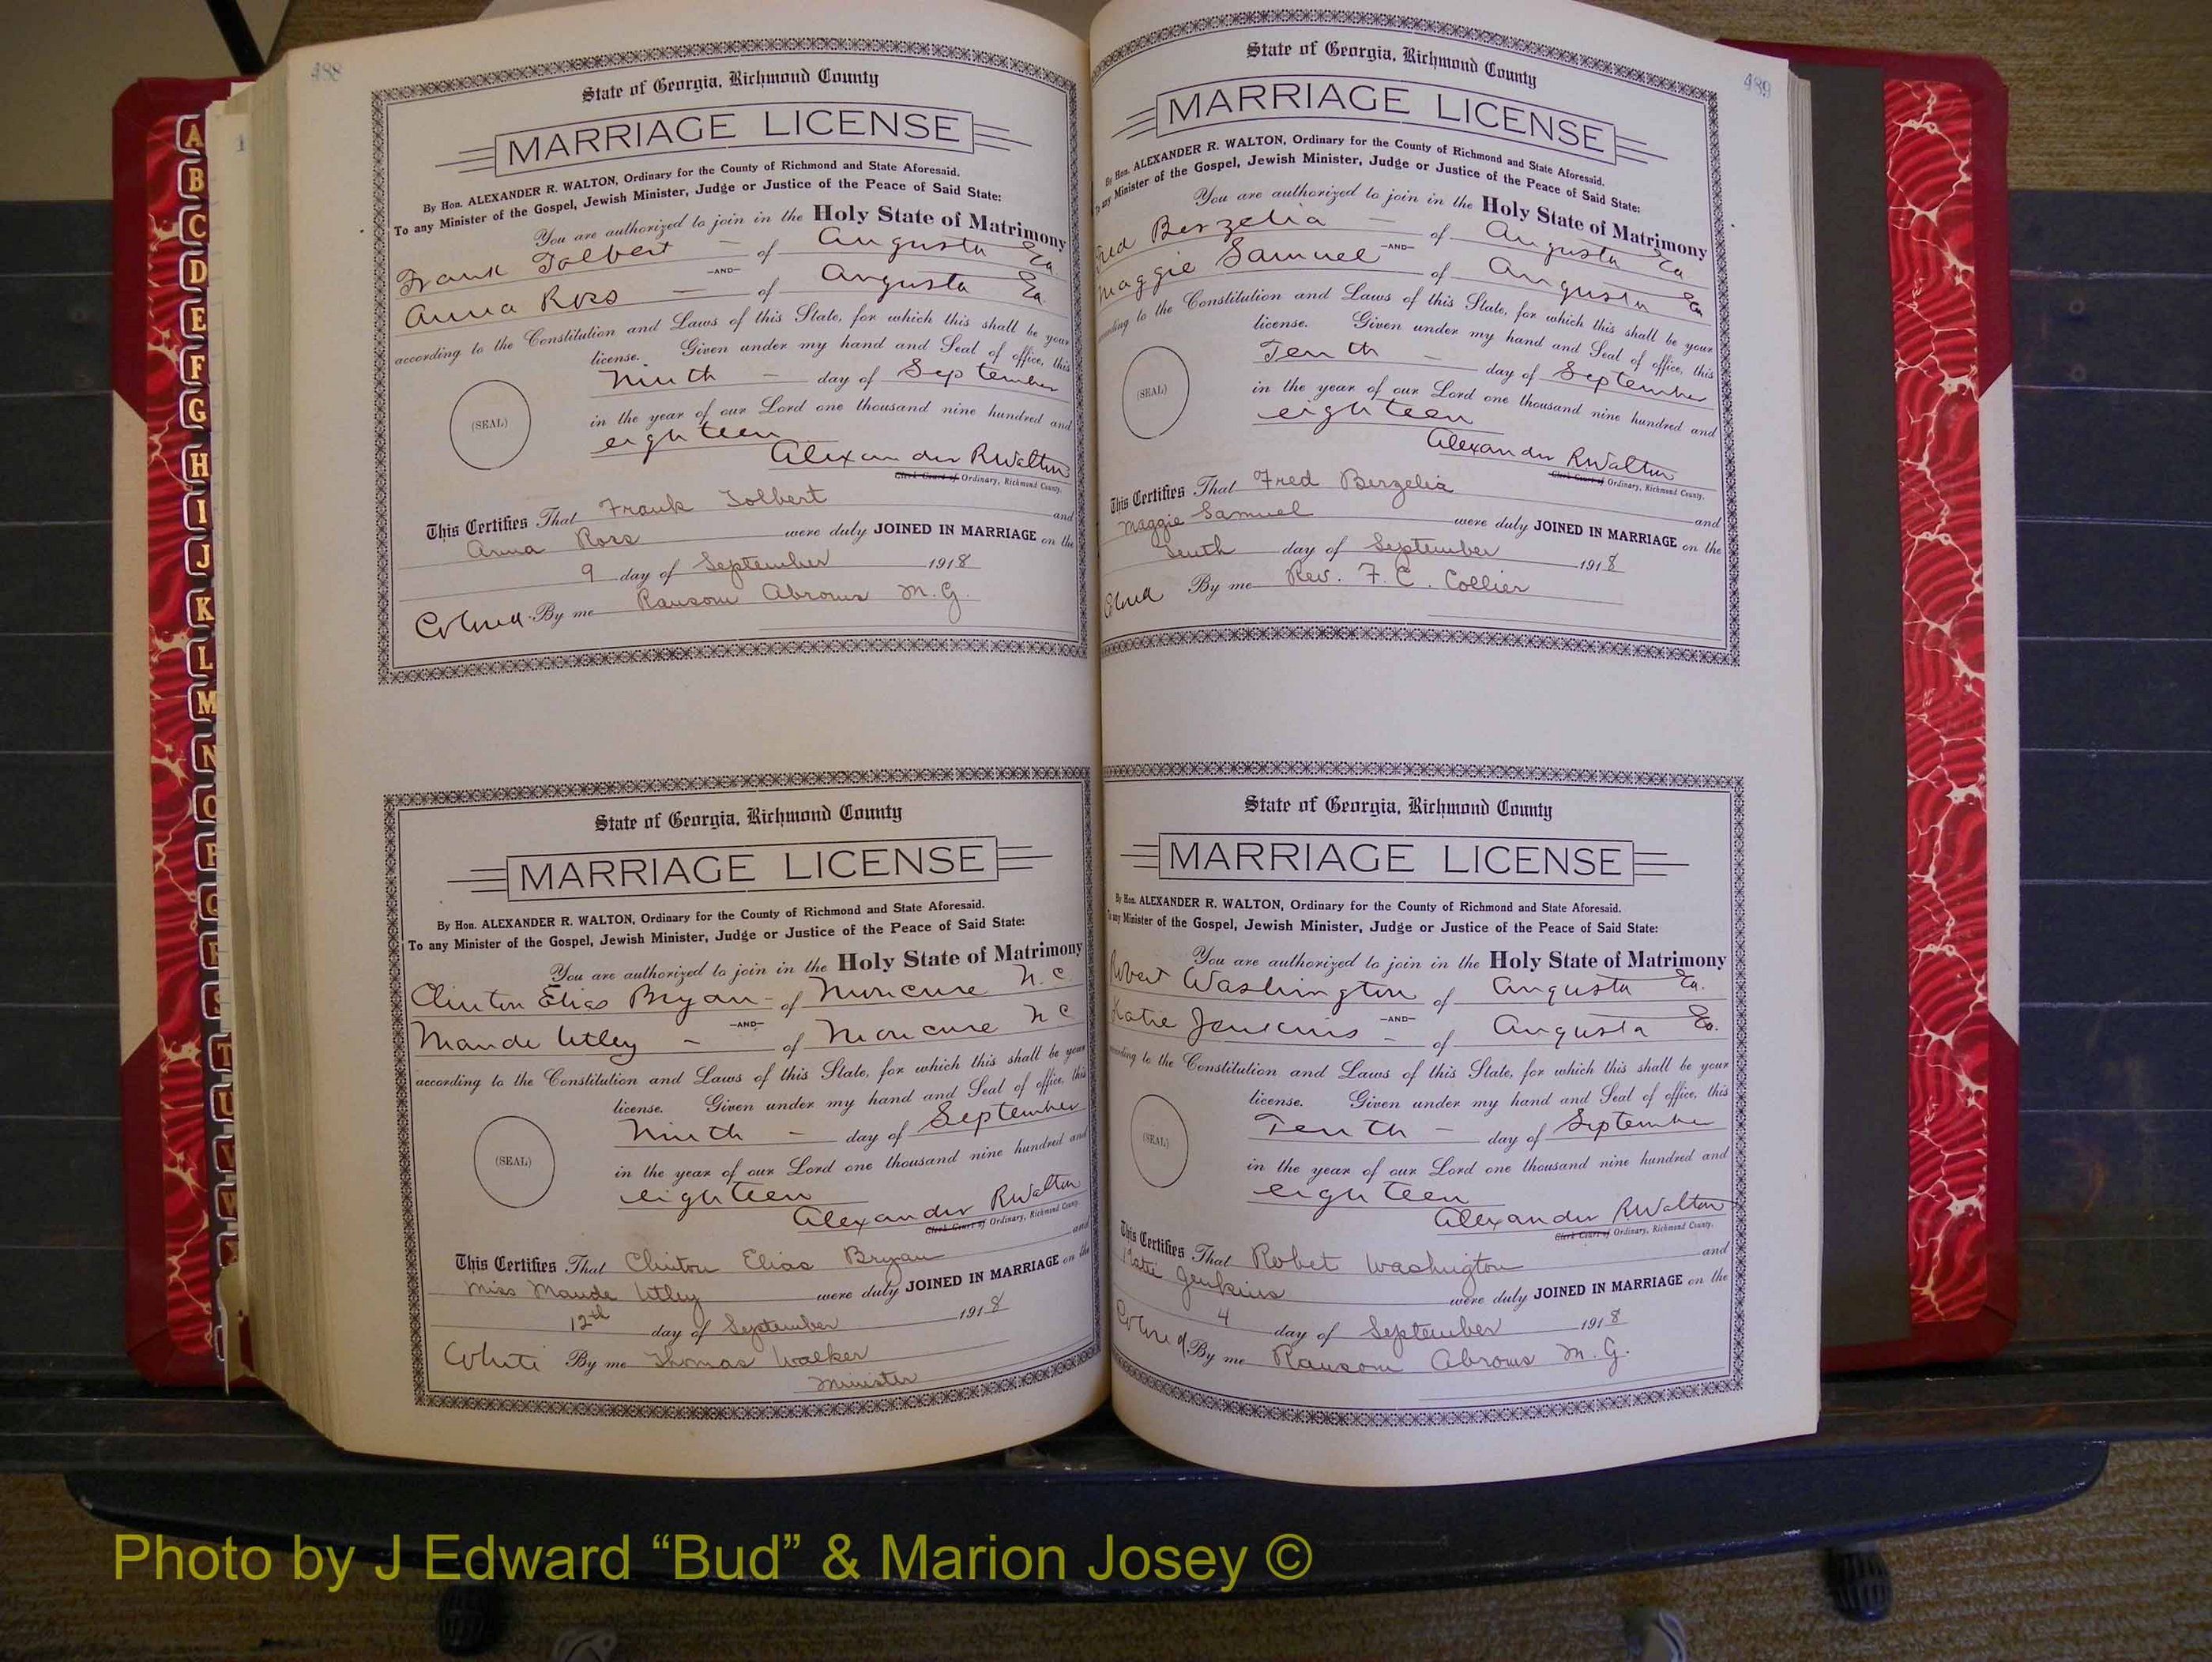 488
State of Georgia, Richmond County
MARRIAGE LICENSE
By Hon. ALEXANDER R. WALTON, Ordinary for the County of Richmond and State Aforesaid.
To any Minister of the Gospel, Jewish Minister, Judge or Justice of the Peace of Said State:
You are authorized to join in the Holy State of Matrimony
Frank Tolbert - of Augusta Ga.
—AND—
Anna Ross - of Augusta Ga.
according to the Constitution and Laws of this State, for which this shall be your
license. Given under my hand and Seal of office, this
Ninth - day of September
(SEAL)
in the year of our Lord one thousand nine hundred and
eighteen
Alexander R Walton
Clerk Court of Ordinary, Richmond County.
This Certifies That Frank Tolbert and
Anna Ross were duly JOINED IN MARRIAGE on the
9 day of September 1918
Colored By me Ransom Abrows M.G.
State of Georgia, Richmond County
MARRIAGE LICENSE
By Hon. ALEXANDER R. WALTON, Ordinary for the County of Richmond and State Aforesaid.
To any Minister of the Gospel, Jewish Minister, Judge or Justice of the Peace of Said State:
You are authorized to join in the Holy State of Matrimony
Clinton Elias Bryan - of Moncure N.C
—AND—
Maude Utley - of Moncure N C
according to the Constitution and Laws of this State, for which this shall be your
license. Given under my hand and Seal of office, this
Ninth - day of September
(SEAL)
in the year of our Lord one thousand nine hundred and
eighteen
Alexander R Walton
Clerk Court of Ordinary, Richmond County.
This Certifies That Clinton Elias Bryan and
Miss Maude Utley were duly JOINED IN MARRIAGE on the
12th day of September 1918
White By me Thomas Walker
Minister
489
State of Georgia, Richmond County
MARRIAGE LICENSE
By Hon. ALEXANDER R. WALTON, Ordinary for the County of Richmond and State Aforesaid.
To any Minister of the Gospel, Jewish Minister, Judge or Justice of the Peace of Said State:
You are authorized to join in the Holy State of Matrimony
Fred Berzelia - of Augusta Ga
—AND—
Maggie Samuel of Augusta Ga
according to the Constitution and Laws of this State, for which this shall be your
license. Given under my hand and Seal of office, this
Tenth - day of September
(SEAL)
in the year of our Lord one thousand nine hundred and
eighteen
Alexander R Walton
Clerk Court of Ordinary, Richmond County.
This Certifies That Fred Berzelia and
Maggie Samuel were duly JOINED IN MARRIAGE on the
Tenth day of September 1918
Colored By me Rev. F. C. Collier
State of Georgia, Richmond County
MARRIAGE LICENSE
By Hon. ALEXANDER R. WALTON, Ordinary for the County of Richmond and State Aforesaid.
To any Minister of the Gospel, Jewish Minister, Judge or Justice of the Peace of Said State:
You are authorized to join in the Holy State of Matrimony
Robert Washington of Augusta Ga.
—AND—
Katie Jenkins - of Augusta Ga.
according to the Constitution and Laws of this State, for which this shall be your
license. Given under my hand and Seal of office, this
Tenth - day of September
(SEAL)
in the year of our Lord one thousand nine hundred and
eighteen
Alexander R Walton
Clerk Court of Ordinary, Richmond County.
This Certifies That Robet Washington and
Katie Jenkins were duly JOINED IN MARRIAGE on the
4 day of September 1918
Colored By me Ransom Abrows M.G.
A
B
C
D
E
F
G
H
I
J
K
L
M
N
O
P
Q
R
S
T
U
V
W
Photo by J Edward “Bud” & Marion Josey ©